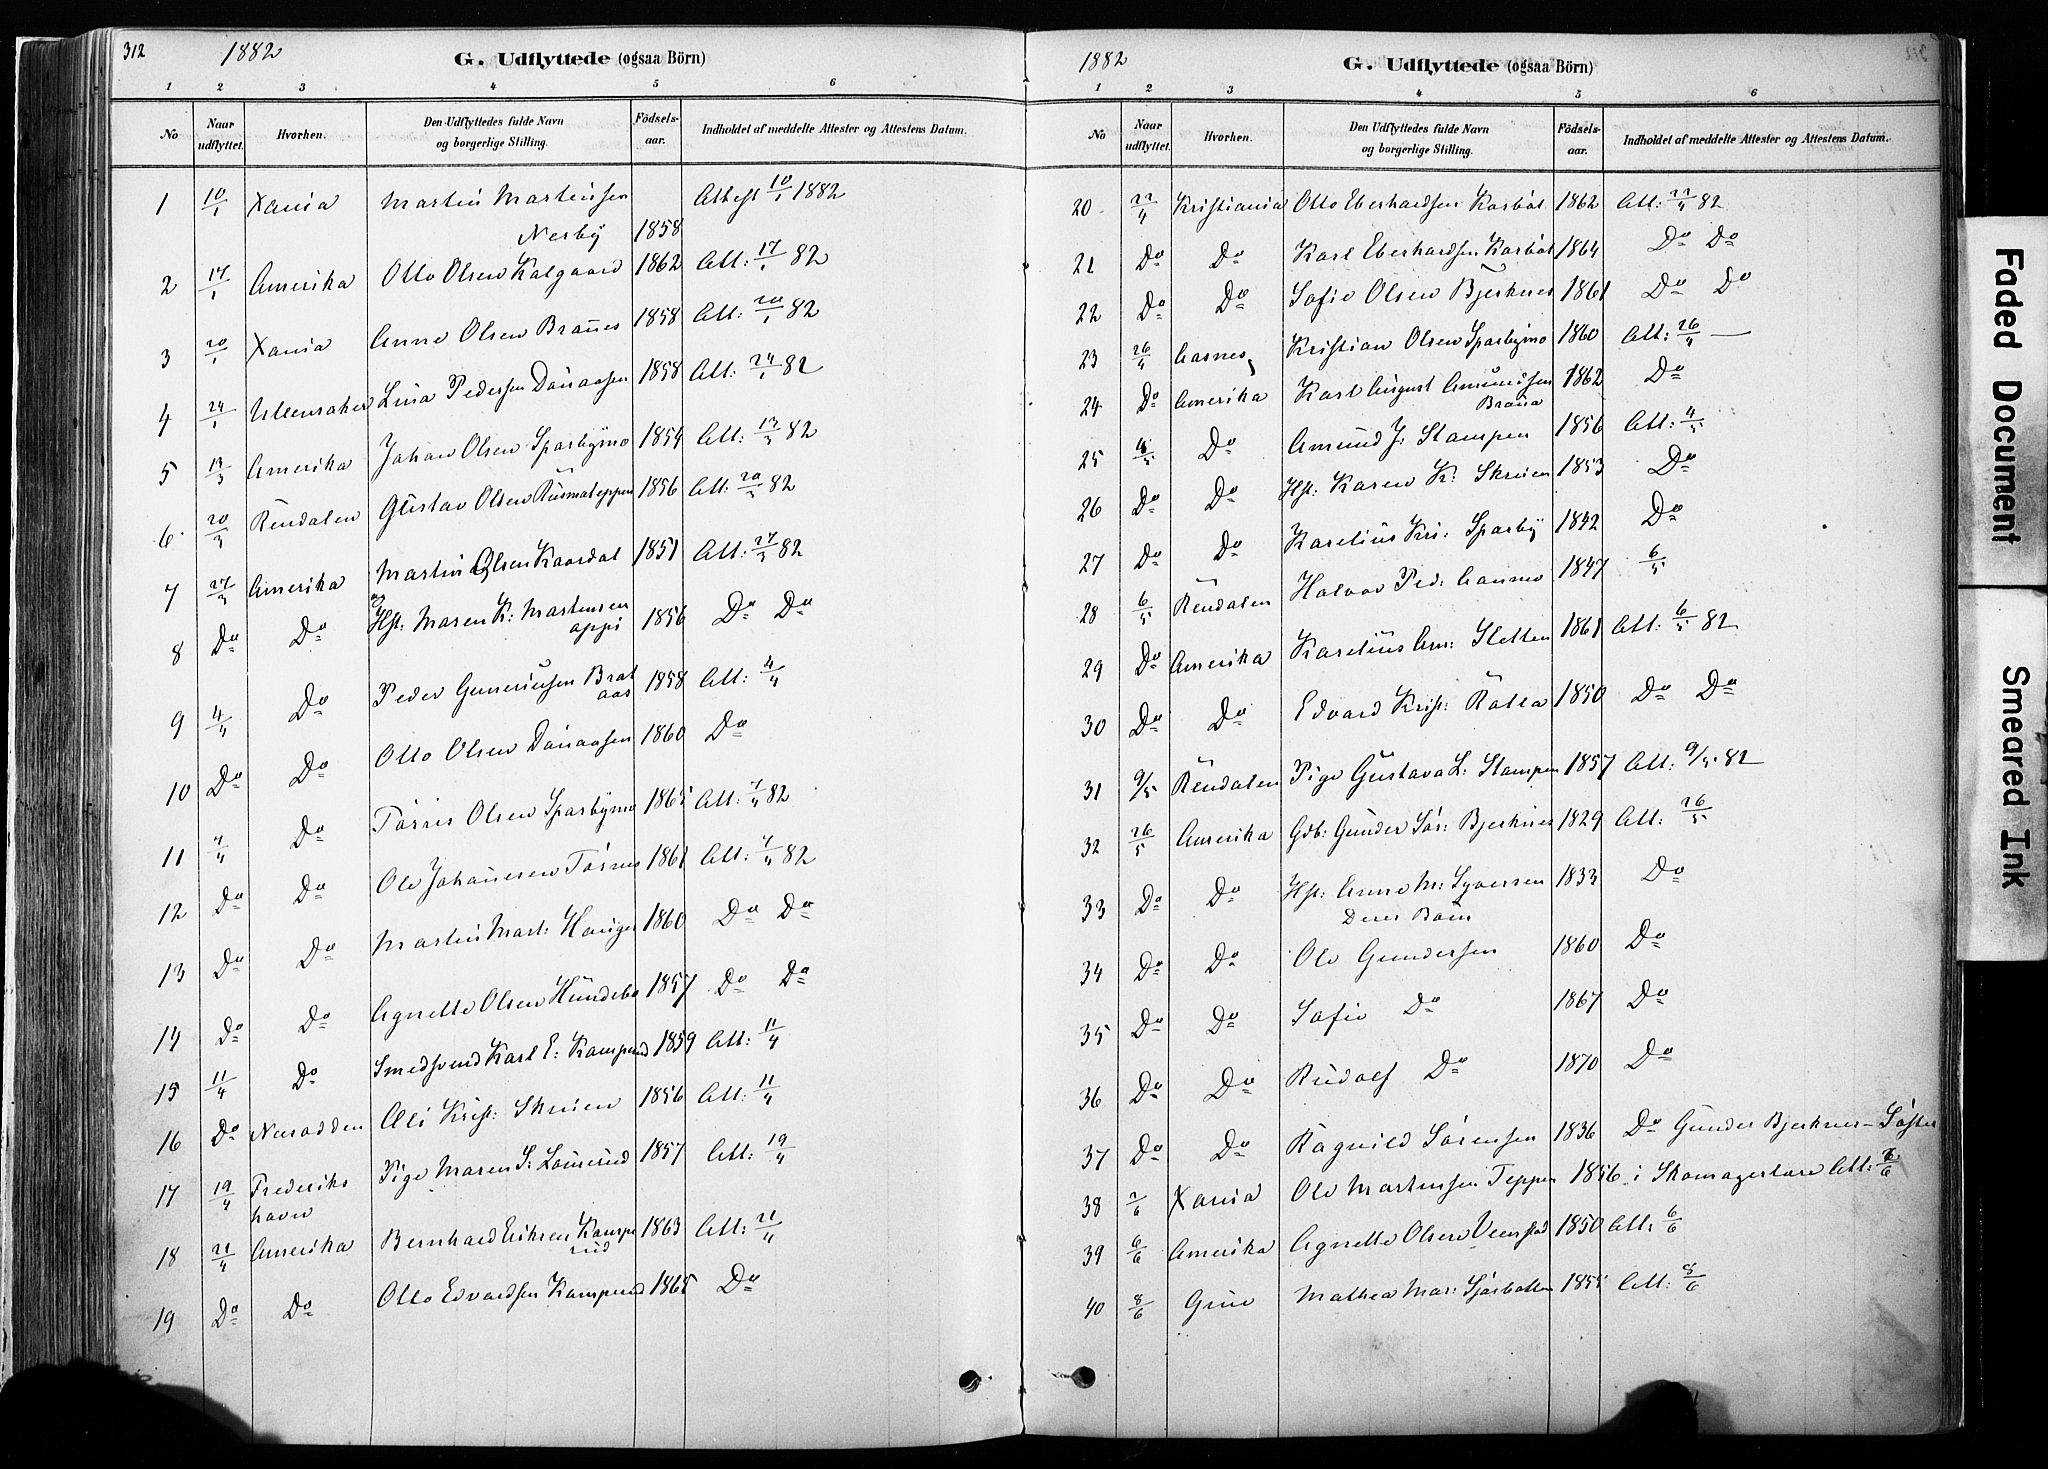 312
1882
G. Udflyttede (ogsaa Börn)
1 2 3 4 5 6
No
Naar udflyttet.
Hvorhen.
Den Udflyttedes fulde Navn og borgerlige Stilling.
Födsels-aar.
Indholdet af meddelte Attester og Attestens Datum.
1 10/1 Xania Martin Martinsen Attest 10/1 1882
Nerby 1858
2 17/1 Amerika Otto Olsen Kalgaard 1862 Att: 17/1 82
3 20/1 Xania Anne Olsen 1858 Att: 20/1 82
4 24/1 Ullensaker Lina Pedersen 1858 Att: 24/1 82
5 13/3 Amerika Johan Olsen Sparbymo 1854 Att: 13/3 82
6 20/3 Rendalen Gustav Olsen 1856 Att: 20/3 82
7 27/3 Amerika Martin Olsen Kaardal 1851 Att: 27/3 82
og
8 Do Do Hst: Maren K: Martensen 1856 Do Do
oppi
9 4/4 Do Peder Gunneriusen Brat 1858 Att: 4/4
aas
10 Do Do Otto Olsen 1860 Do
11 7/4 Do Olsen Sparbymo 1865 Att: 7/4 82
12 Do Do Ole Johannesen 1861 Att: 7/4 82
13 Do Do Martin Mart: 1860 Do Do
14 Do Do Agnette Olsen Hundebo 1857 Do Do
15 11/4 Do Smedsvend Karl E: Kamperud 1859 Att: 11/4
16 Do Nesodden Oli Krist: Skruen 1856 Att: 11/4
17 19/4 Frederiks Pige Maren S: 1857 Att: 19/4
havn
18 21/4 Amerika Bernhard Eriksen Kampe 1863 Att: 21/4
rud
19 Do Do Otto Edvardsen Kamperud 1865 Do
1882
G. Udflyttede (ogsaa Börn)
1 2 3 4 5 6
No
Naar udflyttet.
Hvorhen.
Den Udflyttedes fulde Navn og borgerlige Stilling.
Födsels-aar.
Indholdet af meddelte Attester og Attestens Datum.
20 22/4 Kristiania Otto Eberhardsen Korbøl 1862 Att: 22/4 82
21 Do Do Karl Eberhardsen Korbøl 1864 Do Do
22 Do Do Sofie Olsen Bjerknes 1861 Do Do
23 26/4 Aasnes Kristian Olsen Sparbymo 1860 Att: 26/4 —
24 Do Amerika Karl August Amundsen 1862 Do
25 4/5 Do Amund J: Stampen 1856 Att: 4/5
26 Do Do Hst: Karen K: Skruen 1853 Do
27 Do Do Karelius Kri: Sparby 1842 Do
28 6/5 Rendalen Halvor Ped: 1847 6/5
29 Do Amerika Karelius Am: Sletten 1861 Att: 6/5 82
30 Do Do Edvard Krist: 1850 Do Do
31 9/5 Rendalen Pige Gustava L: Stampen 1857 Att: 9/5 82
32 26/5 Amerika Gdb: Gunder Sør: Bjerknes 1829 Att: 26/5
33 Do Do Hst: Anne M: Syversen 1833 Do
Deres Børn
34 Do Do Ole Gundersen 1860 Do
35 Do Do Sofie Do 1867 Do
36 Do Do Rudolf Do 1870 Do
37 Do Do Ragnild Sørensen 1836 Do Gunder Bjerknes - Søster
38 2/6 Xania Ole Martinsen Teppen 1856 i Skomagerlære Att: 2/6
39 6/6 Amerika Agnette Olsen 1850 Att: 6/6
40 8/6 Grue Mathea Mar: 1855 Att: 8/6
Faded Document
Smeared Ink